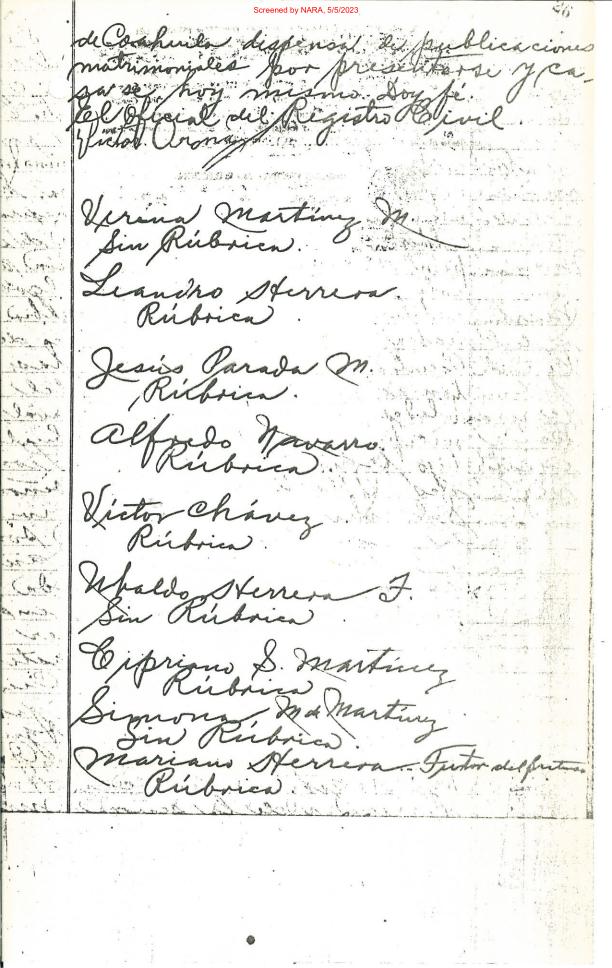 Screened by NARA, 5/5/2023
de Coahuila dispensa de publicaciones
matrimoniales por presentarse y ca-
sarse hoy mismo. Doy fé.
El Oficial del Registro Civil.
Victor
Virina Martínez M.
Sin Rúbrica.
Leandro Herrera.
Rúbrica
Jesús Parada M.
Rúbrica.
Alfredo Navarro.
Rúbrica.
Victor Chávez
Rúbrica.
Ubaldo Herrera F.
Sin Rúbrica.
Cipriano S. Martínez
Rúbrica
Simona M de Martínez
Sin Rúbrica.
Mariano Herrera - Tutor del
Rúbrica.